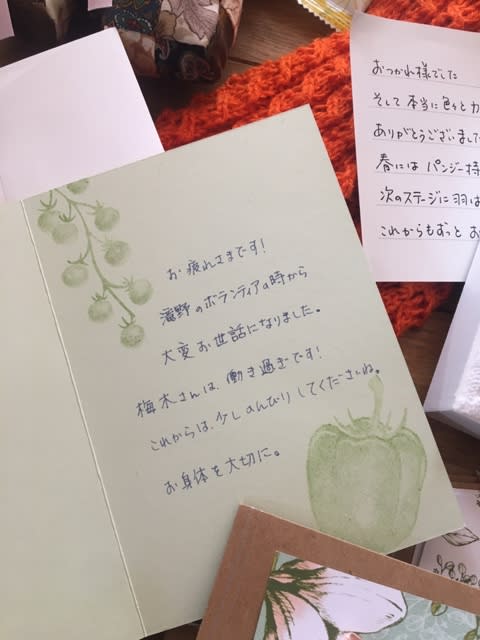 お疲れさまです!
滝野のボランティアの時から
大変お世話になりました。
梅木さんは、働き過ぎです!
これからは、少しのんびりしてくださいね。
お身体を大切に。
おつかれ様でした
そして本当に色々と
ありがとうございました
春には パンジー
次のステージに羽
これからもずっと